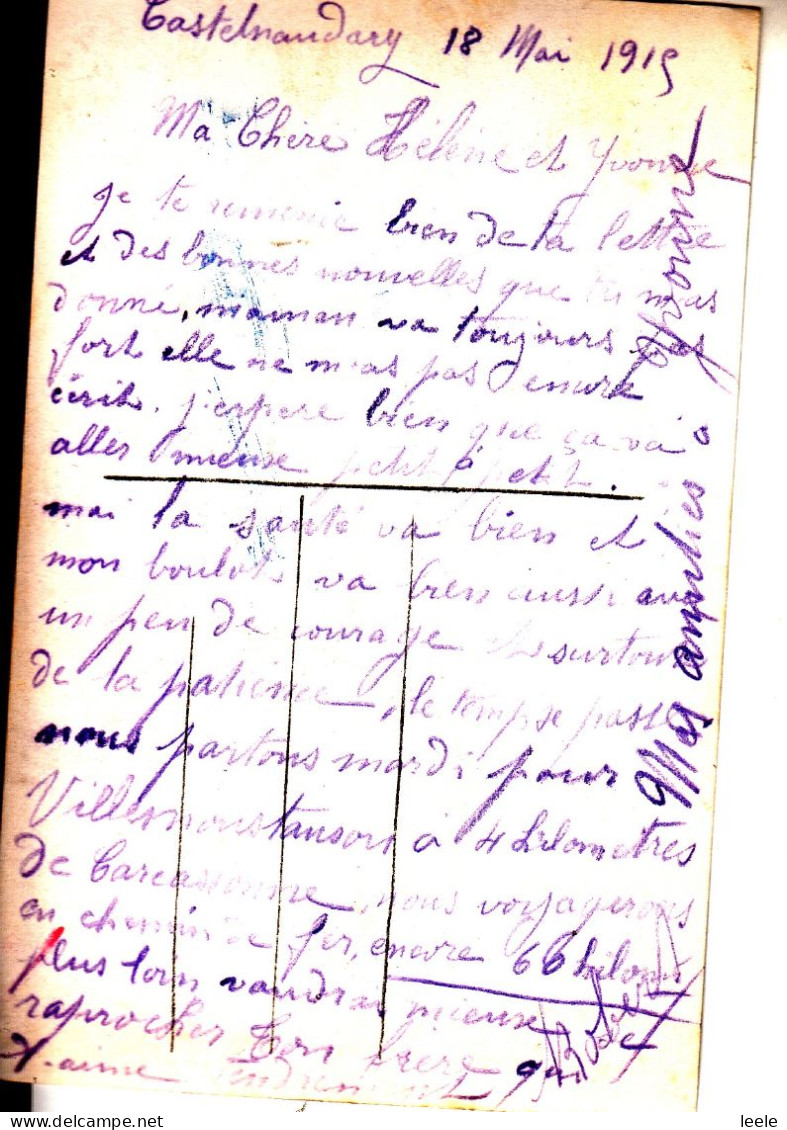 Castelnaudary 18 Mai 1915
Ma Chère Hélène et Yvonne
je te remercie bien de la lettre
et des bonnes nouvelles que tu m'as
donné, maman va toujours pas
fort elle ne m'as pas encore
écrit. j'espere bien que ça va
aller mieuse petit à petit.
moi la santé va bien et
mon boulot va bien aussi avec
un peu de courage et surtout
de la patience, le temp se passe
nous partons mardi pour
Villemoustausou à 4 kilometres
de Carcassonne, nous voyagerons
en chemin de fer, encore 66 kilom
plus loin vaudrai mieuse se
raprocher Ton frere qui
t'aime tendrement
Robert
Mes amitiés à Yvonne
leele